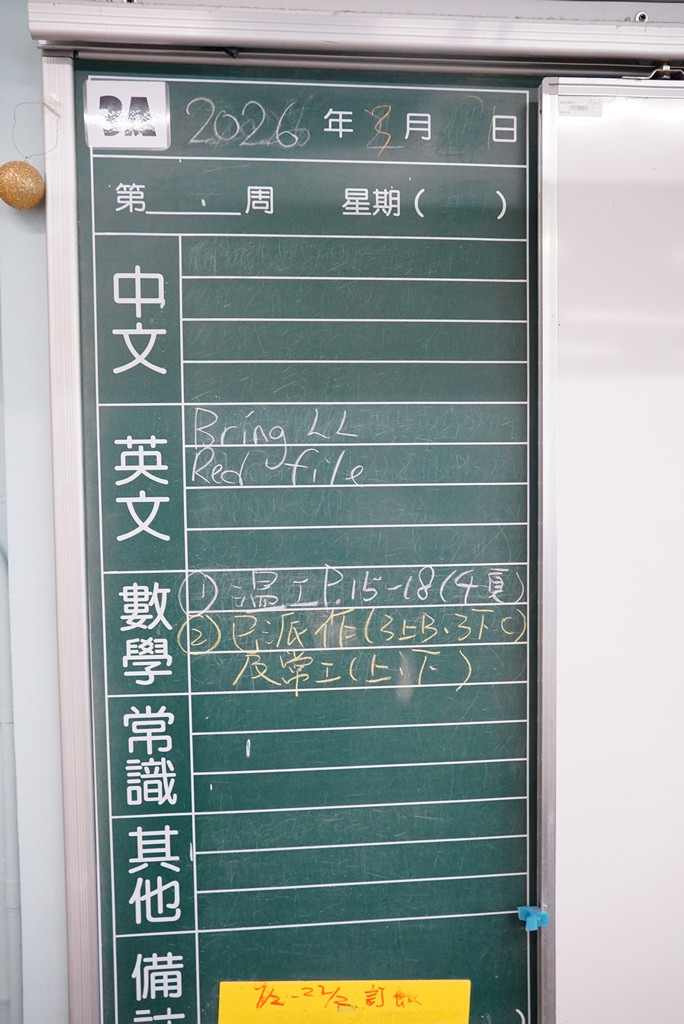 3A 2026年3月 日
第 周 星期( )
中文
英文
Bring LL
Red file
數學
① 溫工P.15-18(4頁)
② 已派作(3上B、3下C)
及常工(上、下)
常識
其他
備註
訂飯